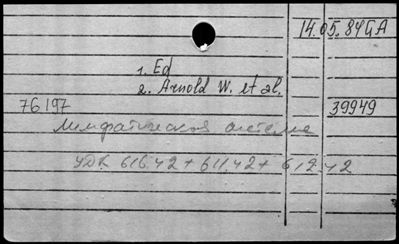 14.05.84GA
1. Ed
2. Arnold W. et al.
76197 39949
лимфатическая система
УДК 616.42 + 611.42 + 612.42